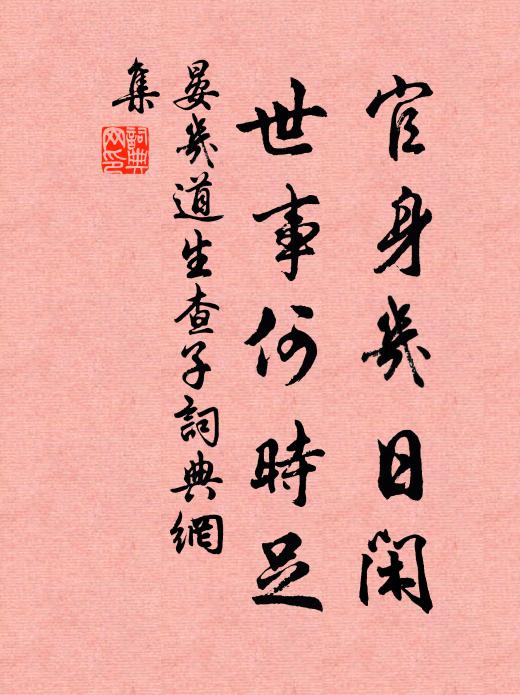 官身幾日閑
世事何時足
晏幾道生查子詞典網
集
詞典
网印